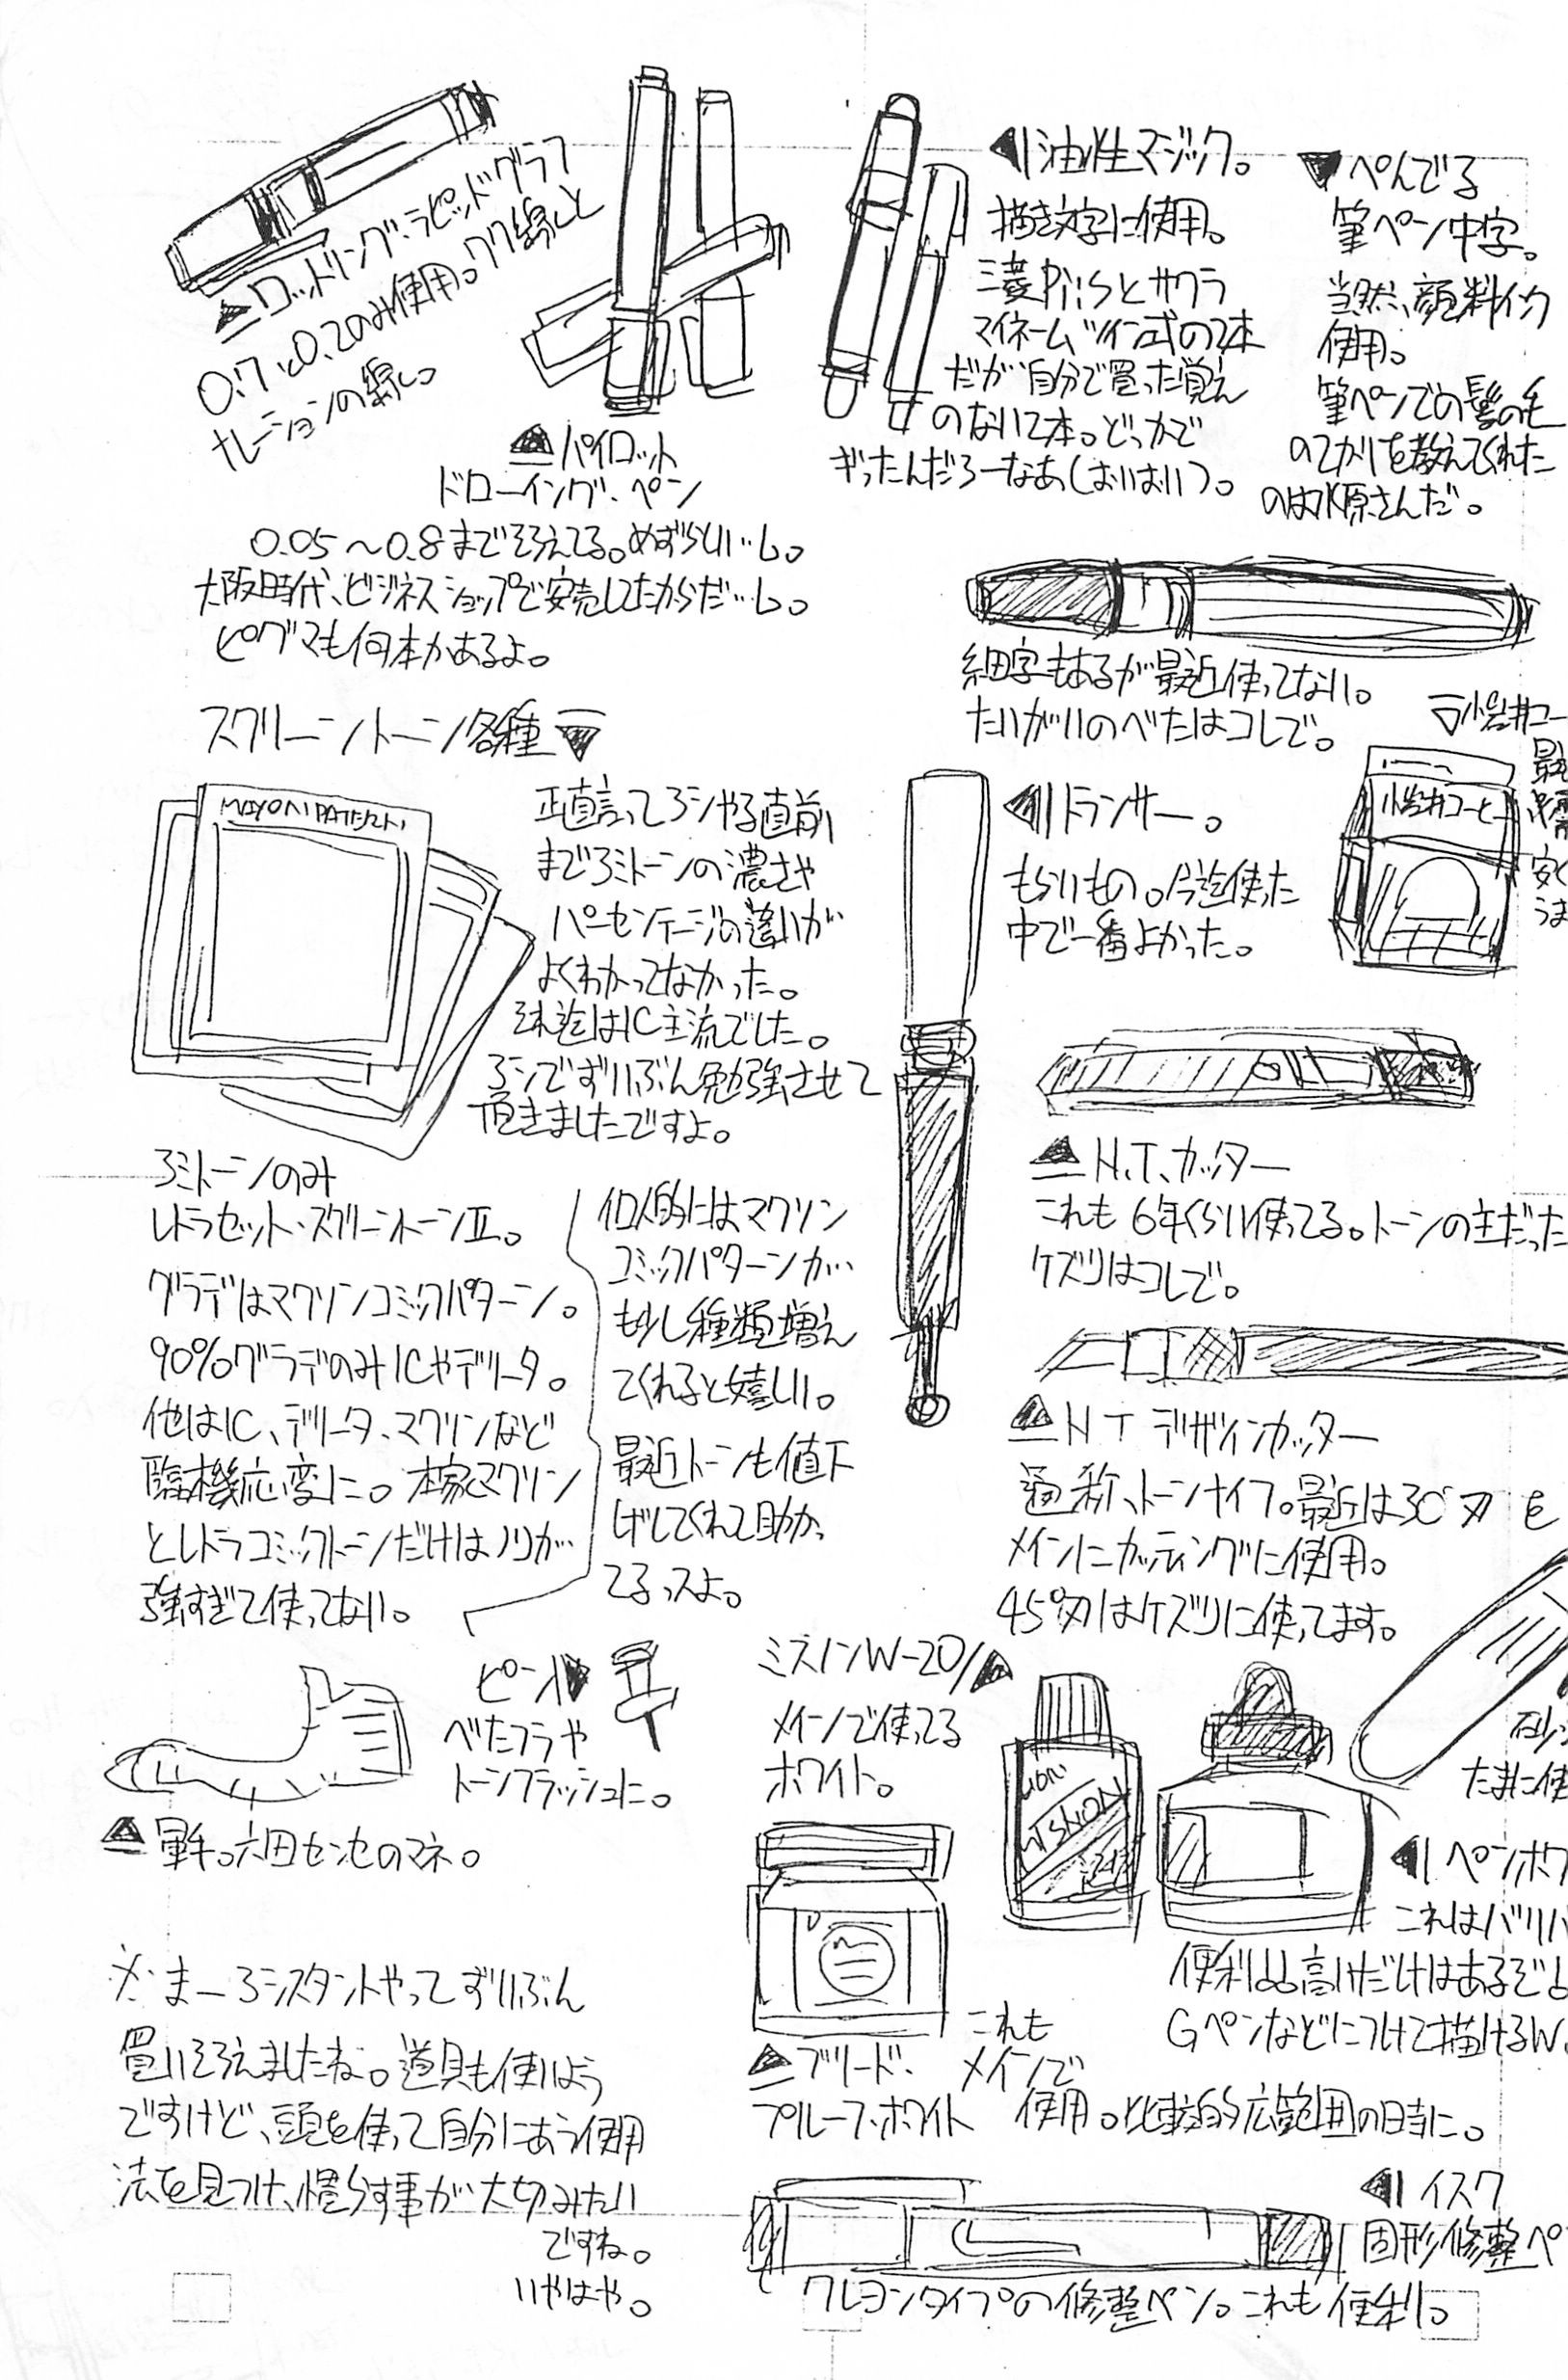 ロットリング・ラピッドグラフ
0.7と0.2のみ使用。ワク線と
ナレーションの線し。
パイロット
ドローイング・ペン
0.05〜0.8までそろえてる。めずらしい…し。
大阪時代、ビジネスショップで安売してたからだ…し。
ピグマも何本かあるよ。
油性マジック。
描き文字に使用。
三菱PiiSとサクラ
マイネームツイン式の2本
だが自分で買った覚え
のない2本。どっかで
ぎったんだろーなあ(おいおい)。
ぺんてる
筆ペン中字。
当然、顔料インク
使用。
筆ペンでの髪の毛
のてかりを教えてくれた
のは水原さんだ。
細字もあるが最近使ってない。
たいがいのべたはコレで。
スクリーントーン各種
正直言ってアシやる直前
までアミトーンの濃さや
パーセンテージの違いが
よくわかってなかった。
それ迄はIC主流でした。
アシでずいぶん勉強させて
頂きましたですよ。
アミトーンのみ
レトラセット・スクリーントーンII。
グラデはマクソンコミックパターン。
90%グラデのみICやデリータ。
他はIC、デリータ、マクソンなど
臨機応変に。本家マクソン
とレトラコミックトーンだけはノリが
強すぎて使ってない。
個人的にはマクソン
コミックパターンが
も少し種類増え
てくれると嬉しい。
最近トーンも値下
げしてくれて助かっ
てるっスよ。
トランサー。
もらいもの。今迄使った
中で一番よかった。
小岩井コー
小岩井コーヒー
最
安く
うま
N.T.カッター
これも6年くらい使ってる。トーンの主だった
ケズリはコレで。
NTデザインカッター
通称、トーンナイフ。最近は30°刃を
メインにカッティングに使用。
45°刃はケズリに使ってます。
ピン
べたフラや
トーンフラッシュに。
軍手。六田センセのマネ。
ミスノンW-20
メインで使ってる
ホワイト。
MISNON
砂
たまに使
ペンホワ
これはバリバ
便利。高いだけはあるぞ。
Gペンなどにつけて描けるW。
ブリード・
プルーフ・ホワイト
これも
メインで
使用。比較的広範囲の時に。
※まーアシスタントやってずいぶん
買いそろえましたね。道具も使いよう
ですけど、頭を使って自分にあう使用
法を見つけ、慣らす事が大切みたい
ですね。
いやはや。
イスク
固形修整ペ
クレヨンタイプの修整ペン。これも便利。